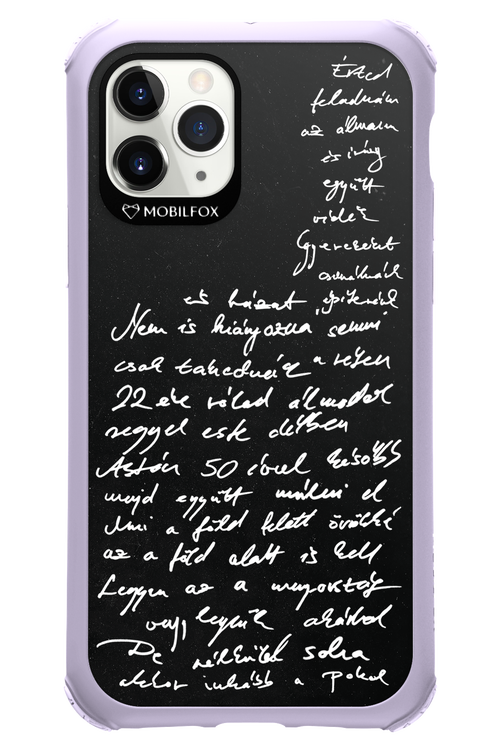 MOBILFOX
Érted
feladnám
az álmaim
és irány
együtt
vidék
Gyereket
csinálnánk
és házat építenék
Nem is hiányozna semmi
csak takednáz a részem
22 éve rólad álmodok
reggel este délben
Aztán 50 évvel később
majd együtt múlni el
Ami a föld felett örökké
az a föld alatt is kell
Legyen az a mennyország
vagy legyünk akárhol
De nélküled soha
akkor inkább a pokol